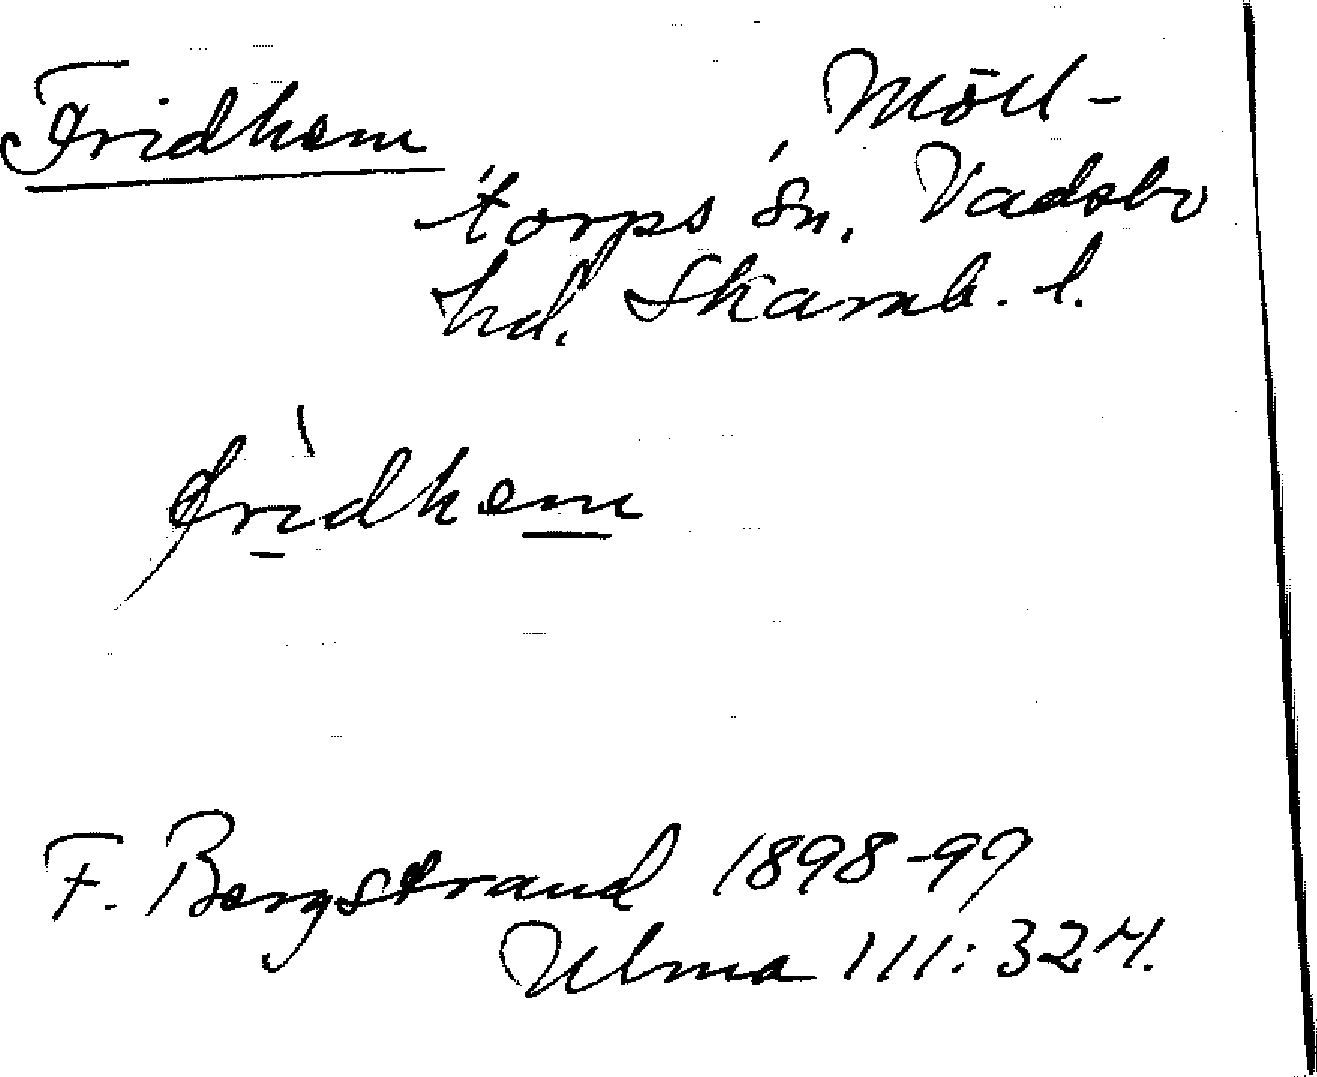 Fridhem
Möll-
torps sn. Vadsbo
hd. Skarab. l.
fridhem
F. Bergstrand 1898-99
Ulma 111:324.